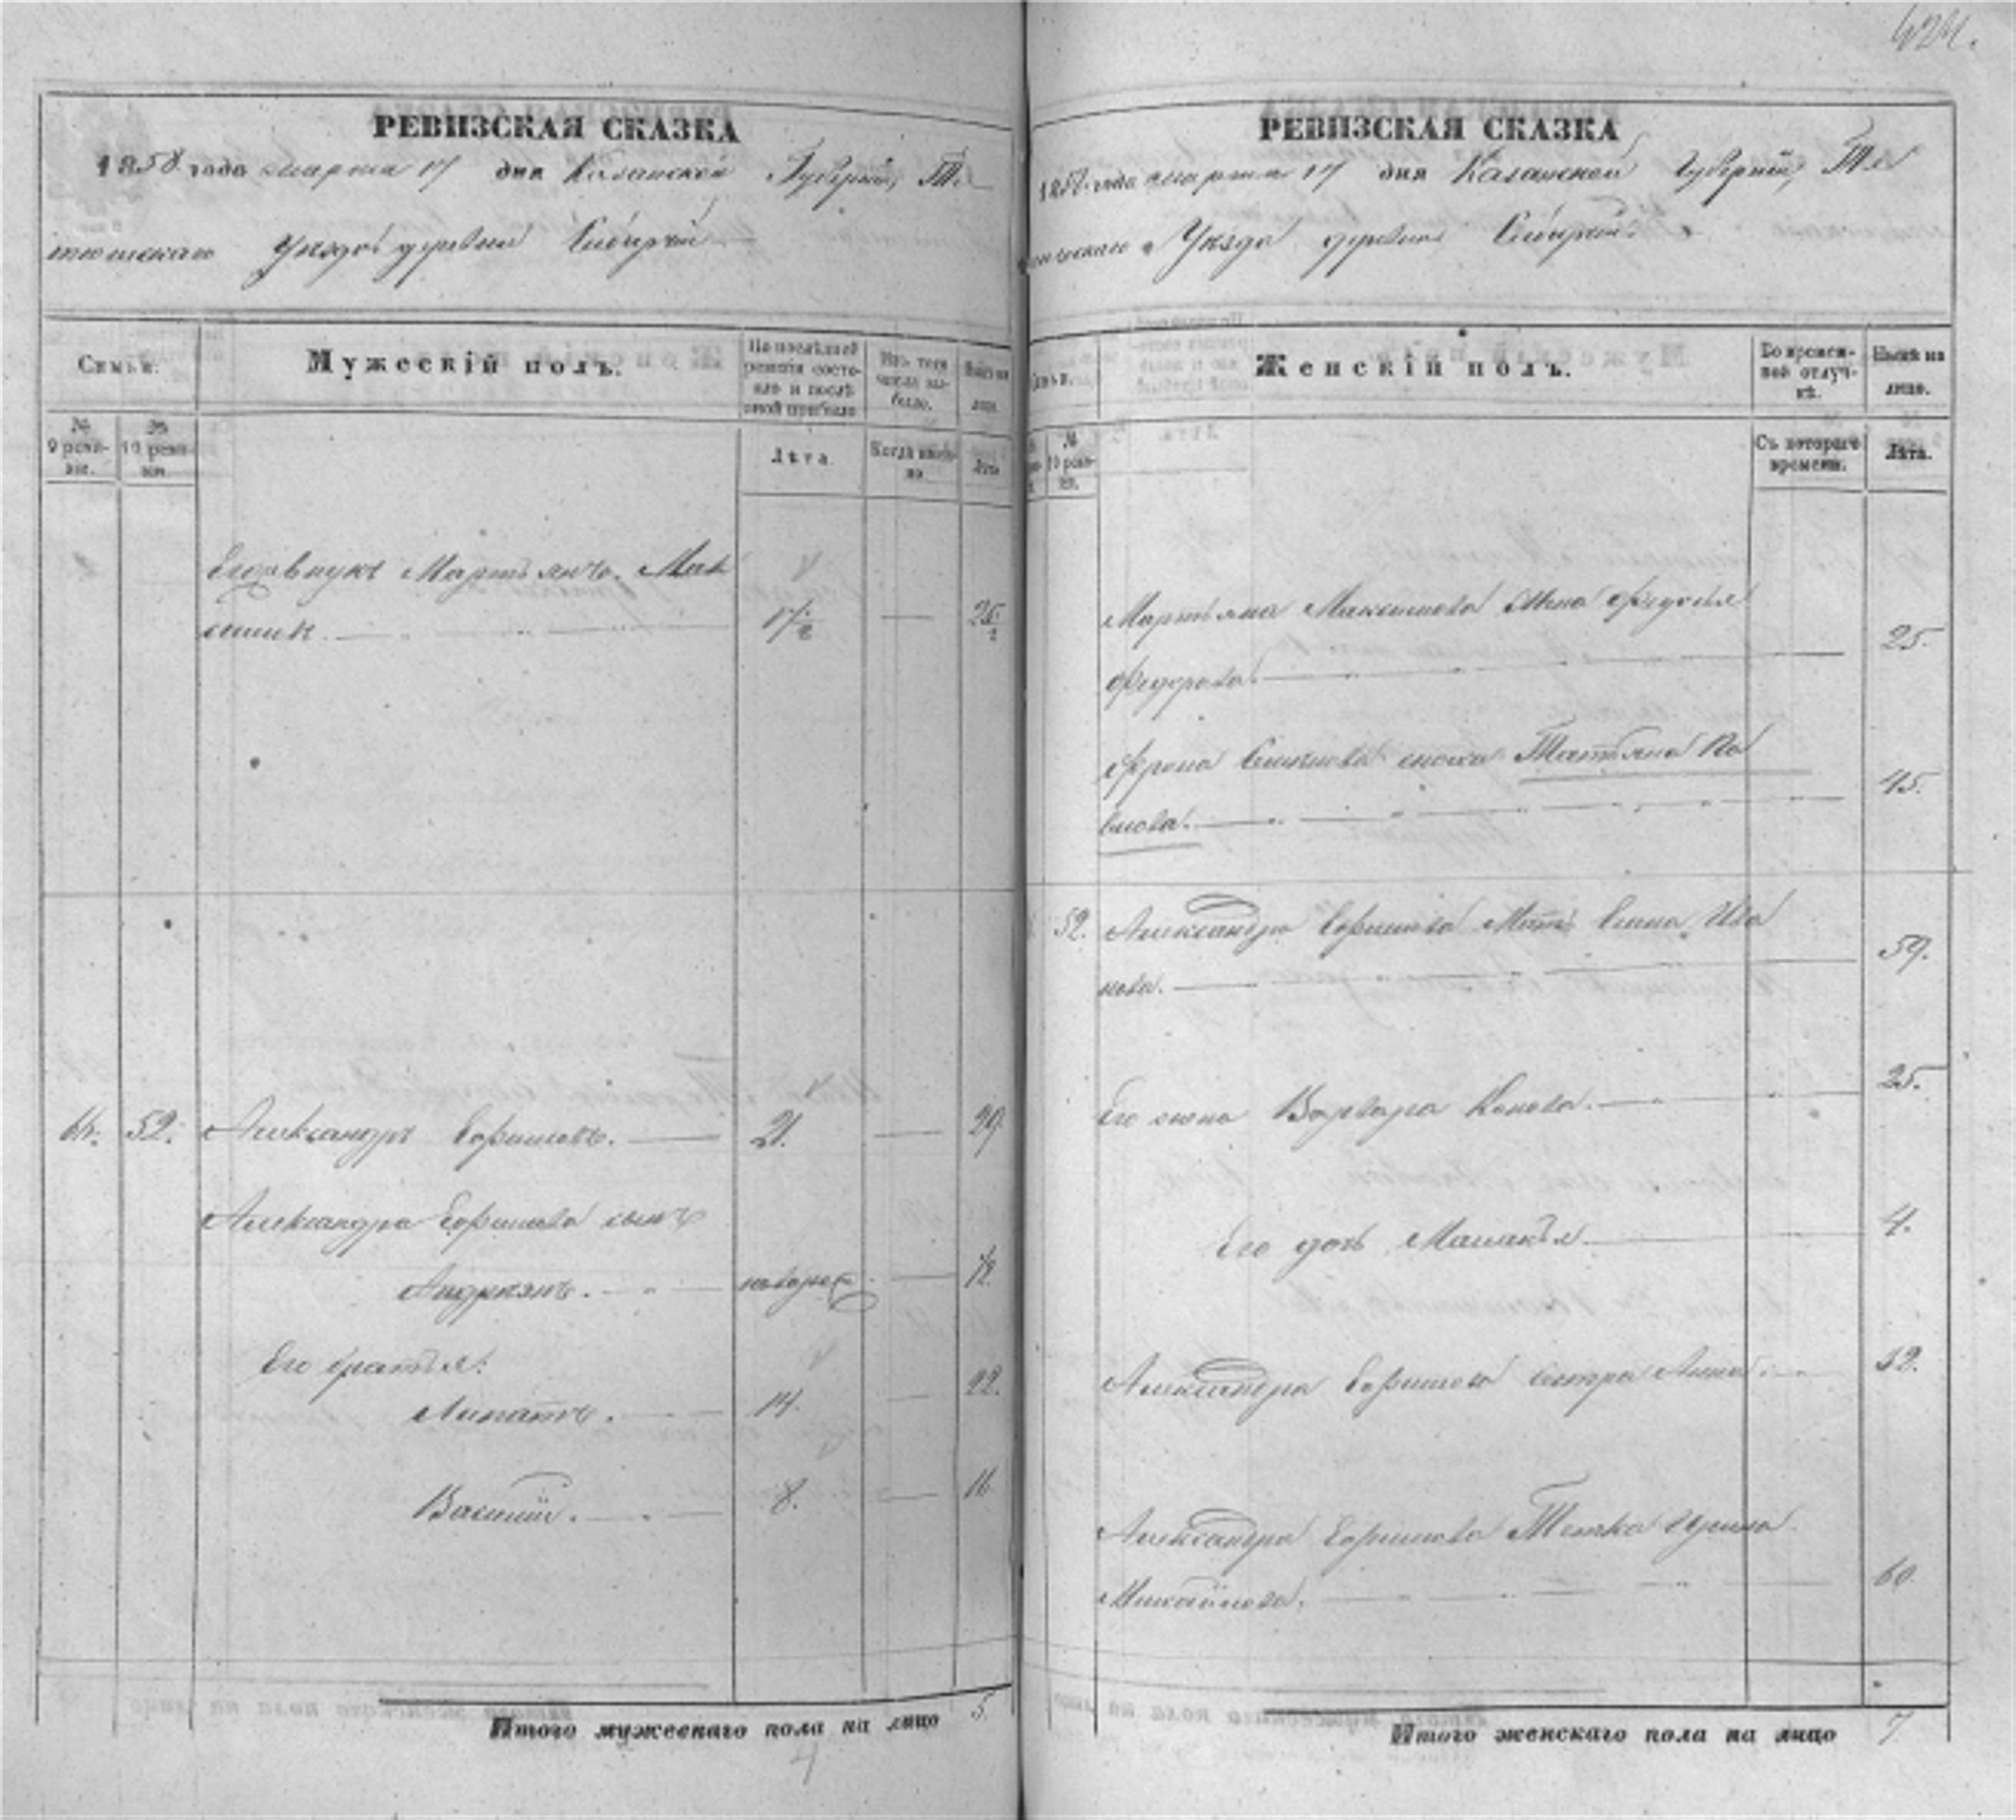 424.
РЕВИЗСКАЯ СКАЗКА
1858 года марта 17 дня Казанской Губерніи, Те
тюшскаго Уѣзда деревни
Семьи.
Мужескій полъ.
По послѣдней ревизіи состояло и послѣ оной прибыло
Изъ того числа выбыло.
Нынѣ на лицо.
№ 9 ревизіи.
№ 10 ревизіи.
Лѣта.
Когда именно.
Лѣта.
Его внукъ Мартьянъ Мак
симовъ. 17 1/2 25 1/2
64. 52. Александръ Ефимовъ. 21. 29
Александра Ефимова сынъ
Андреянъ. новорож. 1/2
Его братья:
Липатъ. 14. 22.
Василій. 8. 16
Итого мужескаго пола на лицо 5.
4
РЕВИЗСКАЯ СКАЗКА
1858 года марта 17 дня Казанской Губерніи, Те
тюшскаго Уѣзда деревни
Семьи.
Женскій полъ.
Во временной отлучкѣ.
Нынѣ на лицо.
№ 10 ревизіи.
Съ котораго времени.
Лѣта.
Мартьяна Максимова жена Федосья
Федорова. 25.
сноха Татьяна Па
влова. 45.
52. Александра Ефимова Мать Елена Ива
нова. 59.
Его жена Варвара 25.
Его дочь Маланья 4.
Александра Ефимова сестра Анна.
Александра Ефимова Тетка Ирина
Михайлова. 60
Итого женскаго пола на лицо 7